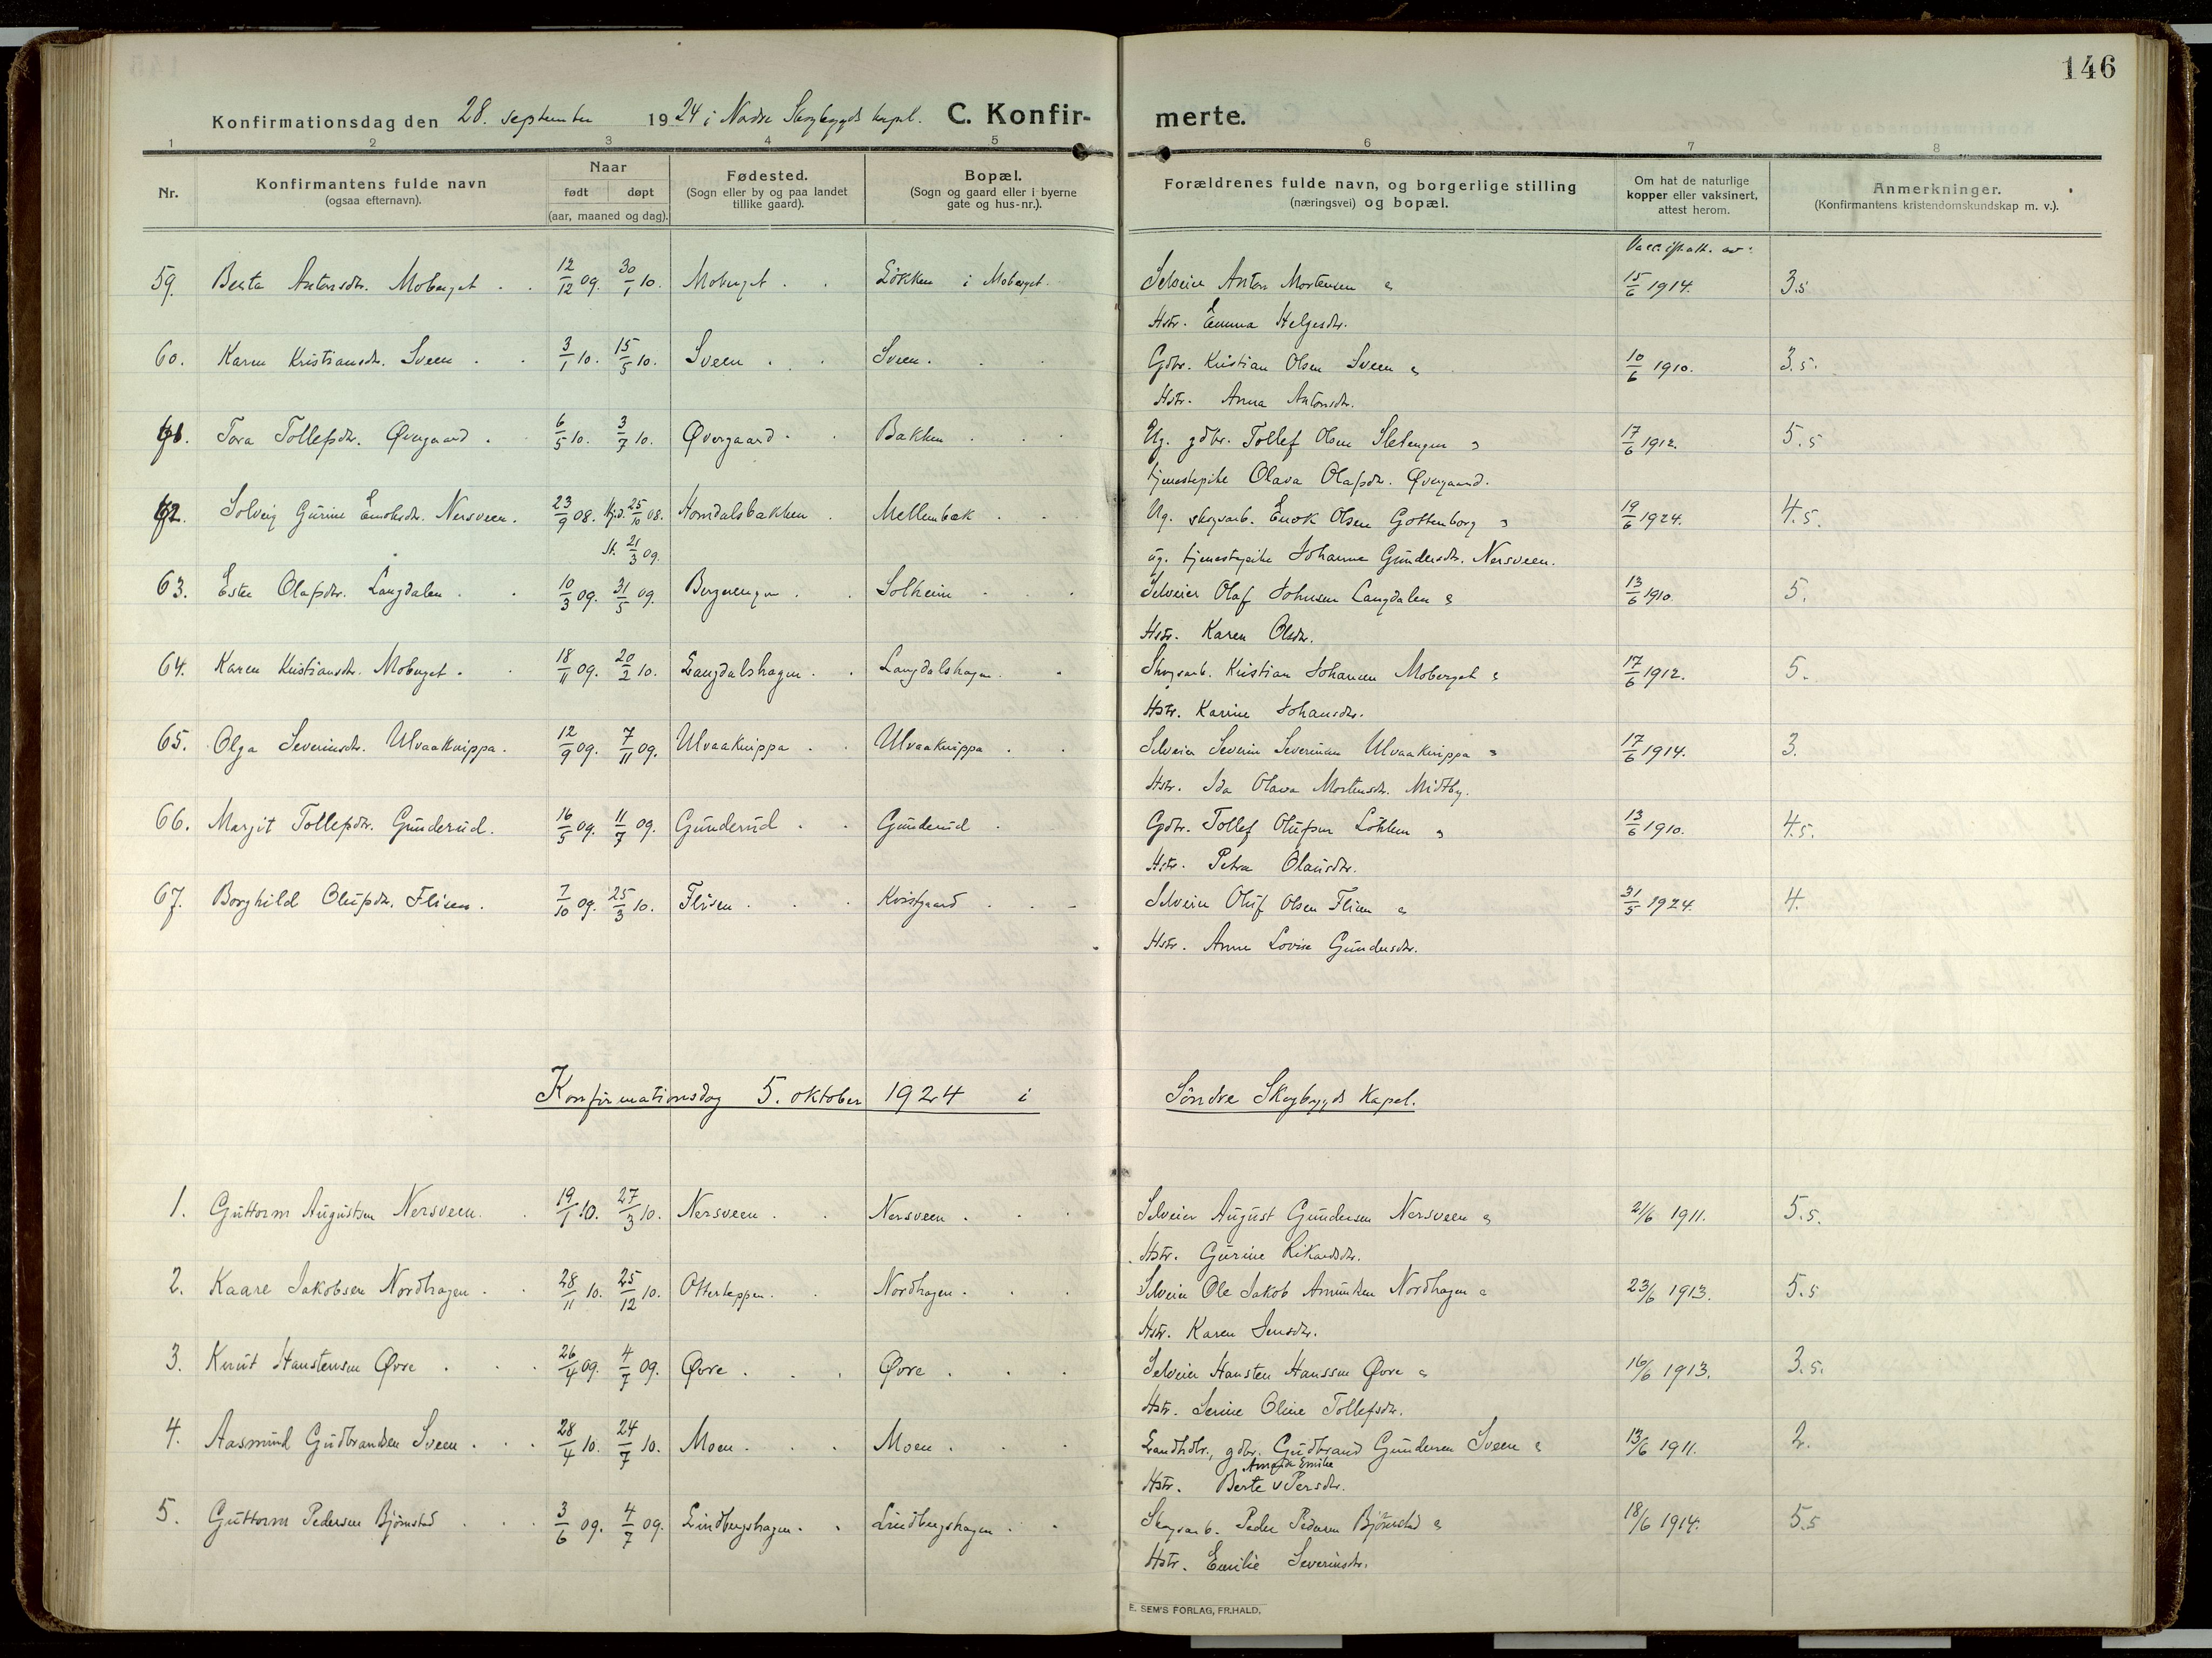 146
Konfirmationsdag den 28. september 1924 i Nordre Skogbygds kapel. C. Konfirmerte.
1 2 3 4 5 6 7 8
Nr.
Konfirmantens fulde navn
(ogsaa efternavn).
Naar
født døpt
(aar, maaned og dag).
Fødested.
(Sogn eller by og paa landet
tillike gaard).
Bopæl.
(Sogn og gaard eller i byerne
gate og hus-nr.).
Forældrenes fulde navn, og borgerlige stilling
(næringsvei) og bopæl.
Om hat de naturlige
kopper eller vaksinert,
attest herom.
Anmerkninger.
(Konfirmantens kristendomskundskap m. v.).
59. Berta Antonsdtr. Moberget . . 12/12 09. 30/1 10. Moberget . . Løkken i Moberget. Selveier Anton Mortensen & 15/6 1914. 3.5
Hstr. Emma Helgesdtr.
60. Karen Kristiansdtr. Sveen . . 3/1 10. 15/5 10. Sveen . . Sveen . . . Gdbr. Kristian Olsen Sveen & 10/6 1910. 3.5.
Hstr. Anna Antonsdtr.
61. Tora Tollefsdtr. Øvergaard . 6/5 10. 3/7 10. Øvergaard . . Bakken . . . Ug. gdbr. Tollef Olsen Sletengen & 17/6 1912. 5.5
tjenestepike Olava Olafsdtr. Øvergaard.
62. Solveig Gurine Enoksdtr. Nersveen. 23/9 08. Hjd. 25/10 08. Homdalsbakken . Mellembæk . . Ug. skogsarb. Enok Olsen Gottenborg & 19/6 1924. 4.5.
St. 21/3 09.
ug. tjenestepike Johanne Gundersdtr. Nersveen.
63. Ester Olafsdtr. Langdalen . . 10/3 09. 31/5 09. Bergerengen . . Solheim . . . Selveier Olaf Johnsen Langdalen & 13/6 1910. 5.
Hstr. Karen Olsdtr.
64. Karen Kristiansdtr. Moberget . . 18/11 09. 20/2 10. Langdalshagen . . Langdalshagen . . Skogsarb. Kristian Johansen Moberget & 17/6 1912. 5.
Hstr. Karine Johansdtr.
65. Olga Severinsdtr. Ulvaaknippa . 12/9 09. 7/11 09. Ulvaaknippa . . Ulvaaknippa . . Selveier Severin Severinsen Ulvaaknippa & 17/6 1914. 3.
Hstr. Ida Olava Mortensdtr. Midtby.
66. Margit Tollefsdtr. Gunderud. 16/5 09. 11/7 09. Gunderud . . Gunderud . Gdbr. Tollef Olufsen Løkken & 13/6 1910. 4.5.
Hstr. Petra Olausdtr.
67. Borghild Olufsdtr. Flisen . 7/10 09. 25/3 10. Flisen . . . Kvistgaard . . . Selveier Oluf Olsen Flisen & 31/5 1924. 4.
Hstr. Anne Lovise Gundersdtr.
Konfirmationsdag 5. oktober 1924 i Söndre Skogbygds Kapel.
1. Guttorm Augustsen Nersveen. . 19/1 10. 27/3 10. Nersveen . . Nersveen . . . Selveier August Gundersen Nersveen & 21/6 1911. 5.5.
Hstr. Gurine Rikardsdtr.
2. Kaare Jakobsen Nordhagen . . 28/11 10. 25/12 10. Otterteppen . . Nordhagen . . . Selveier Ole Jakob Amundsen Nordhagen & 23/6 1913. 5.5
Hstr. Karen Jensdtr.
3. Knut Hanstensen Øvre . . . 26/4 09. 4/7 09. Øvre . . . Øvre . . . Selveier Hansten Hanssen Øvre & 16/6 1913. 3.5.
Hstr. Serine Oline Tollefsdtr.
4. Aasmund Gudbrandsen Sveen . . . 28/4 10. 24/7 10. Moen . . . Moen . . . Landhdlr., gdbr. Gudbrand Gundersen Sveen & 13/6 1911. 2.
Hstr. Berte Persdtr.
5. Guttorm Pedersen Bjørnstad . . . 3/6 09. 4/7 09. Lindbergshagen . . Lindbergshagen . . Skogsarb. Peder Pedersen Bjørnstad & 18/6 1914. 5.5
Hstr. Emilie Severinsdtr.
E. SEM'S FORLAG, FR.HALD.